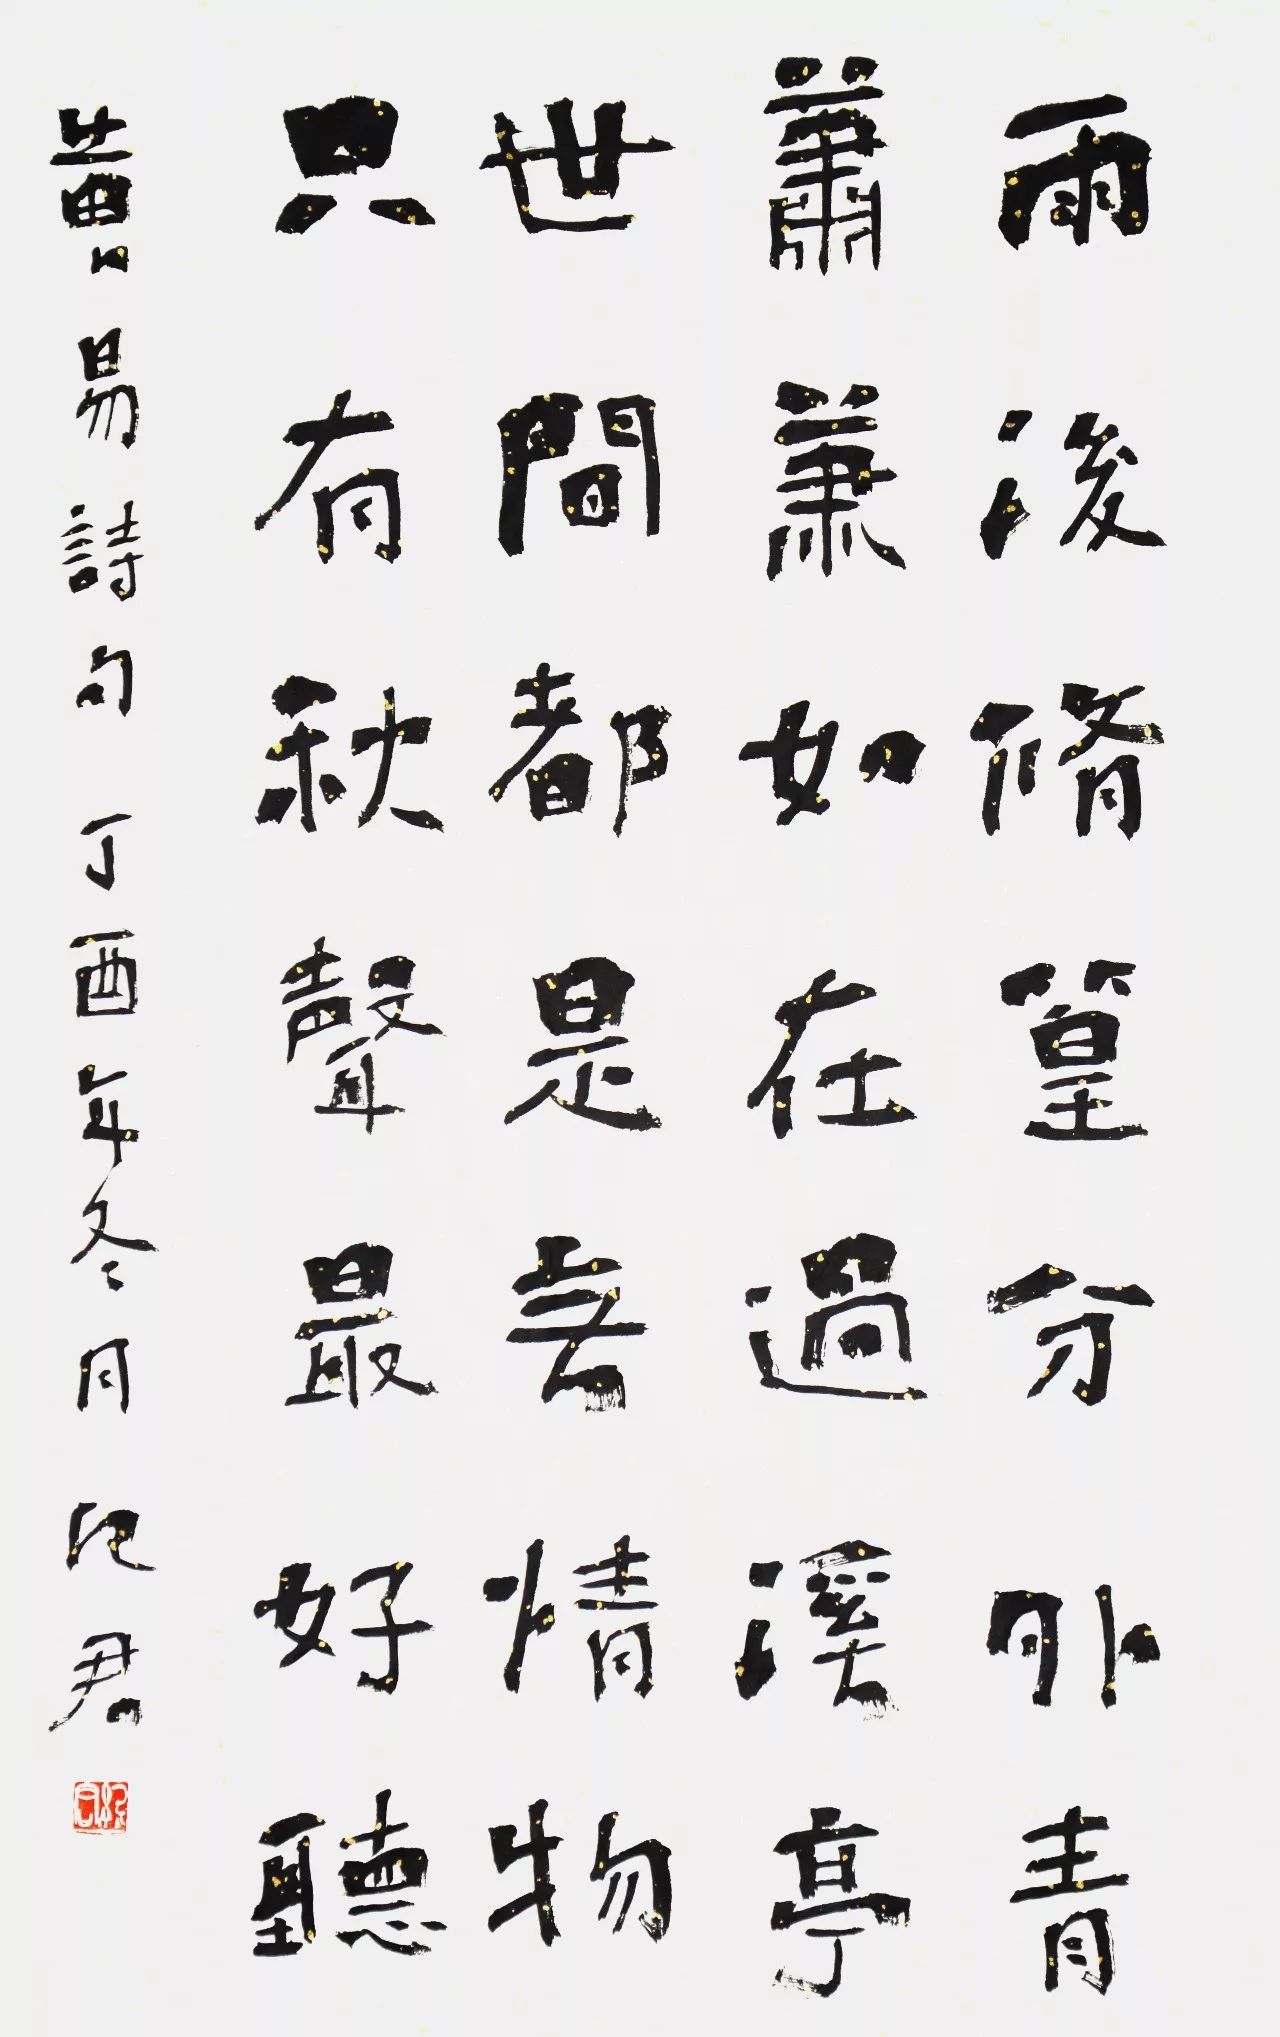 雨後脩篁分外青
蕭蕭如在過溪亭
世間都是無情物
只有秋聲最好聽
黃易詩句 丁酉年冬月 君